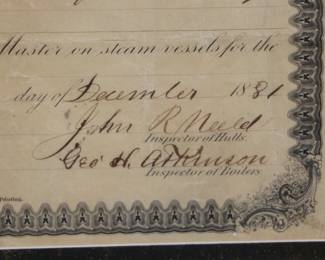 Master on steam vessels for the
day of December 1881
John R Neeld
Inspector of Hulls.
Geo N. Atkinson
Inspector of Boilers.
Printing.